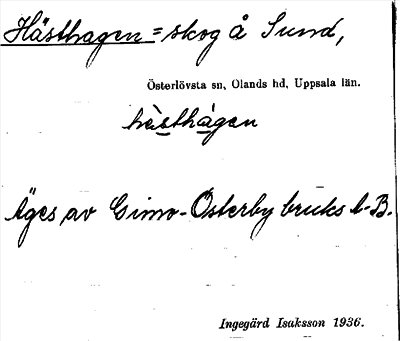 Hästhagen = skog å Sund,
Österlövsta sn, Olands hd, Uppsala län.
hàsthàgen
Äges av Gimo-Österby bruks A-B.
Ingegärd Isaksson 1936.